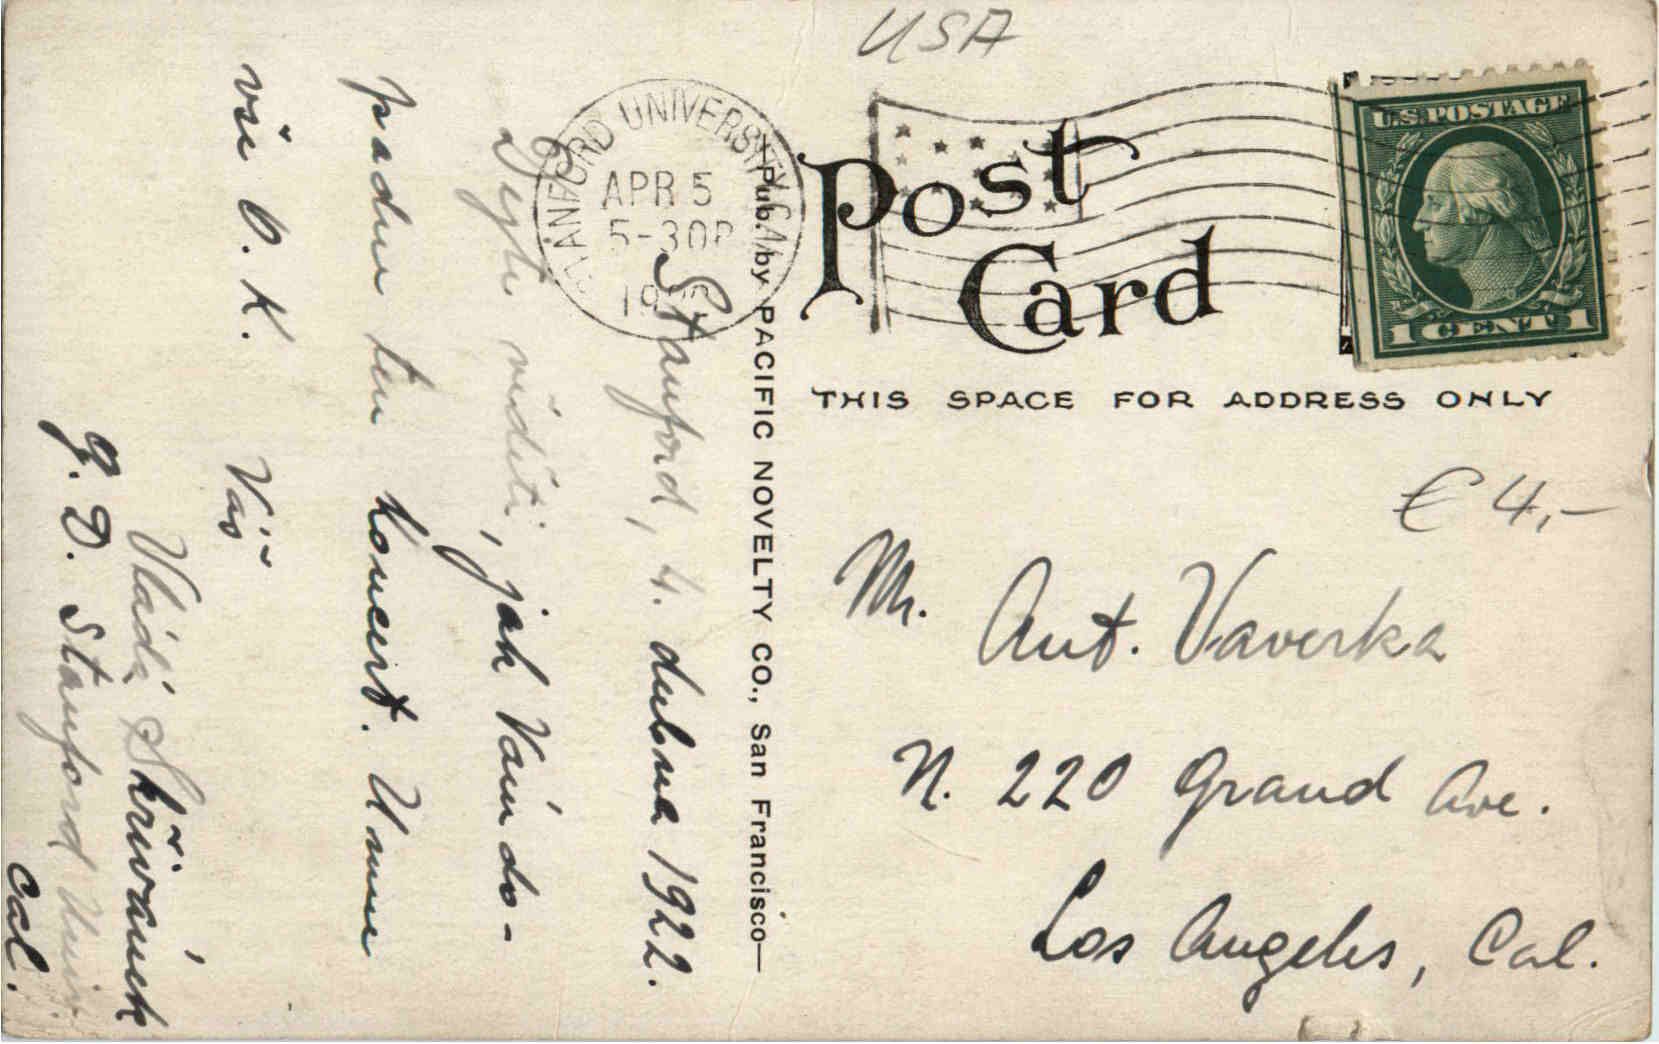 USA
STANFORD UNIVERSITY CAL
APR 5
5-30P
19
Post
Card
U.S. POSTAGE
1 CENT 1
THIS SPACE FOR ADDRESS ONLY
€ 4,-
Mr. Ant. Vaverka
N. 220 Grand Ave.
Los Angeles, Cal.
Pub. by PACIFIC NOVELTY CO., San Francisco
Stanford, 4. dubna 1922.
viděti, jak Vám do-
padnul ten koncert. U mne
vše O. K.
Váš
Vláďa Skřivánek
G. D. Stanford Univ.
Cal.